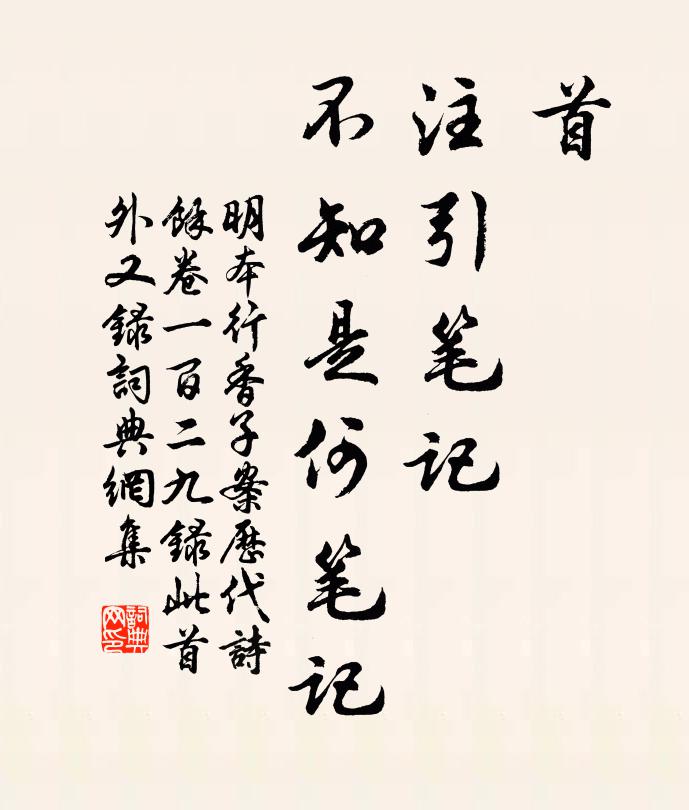 首
注引笔记
不知是何笔记
明本行香子案歷代詩
餘卷一百二九錄此首
外又錄詞典網集
詞典网印